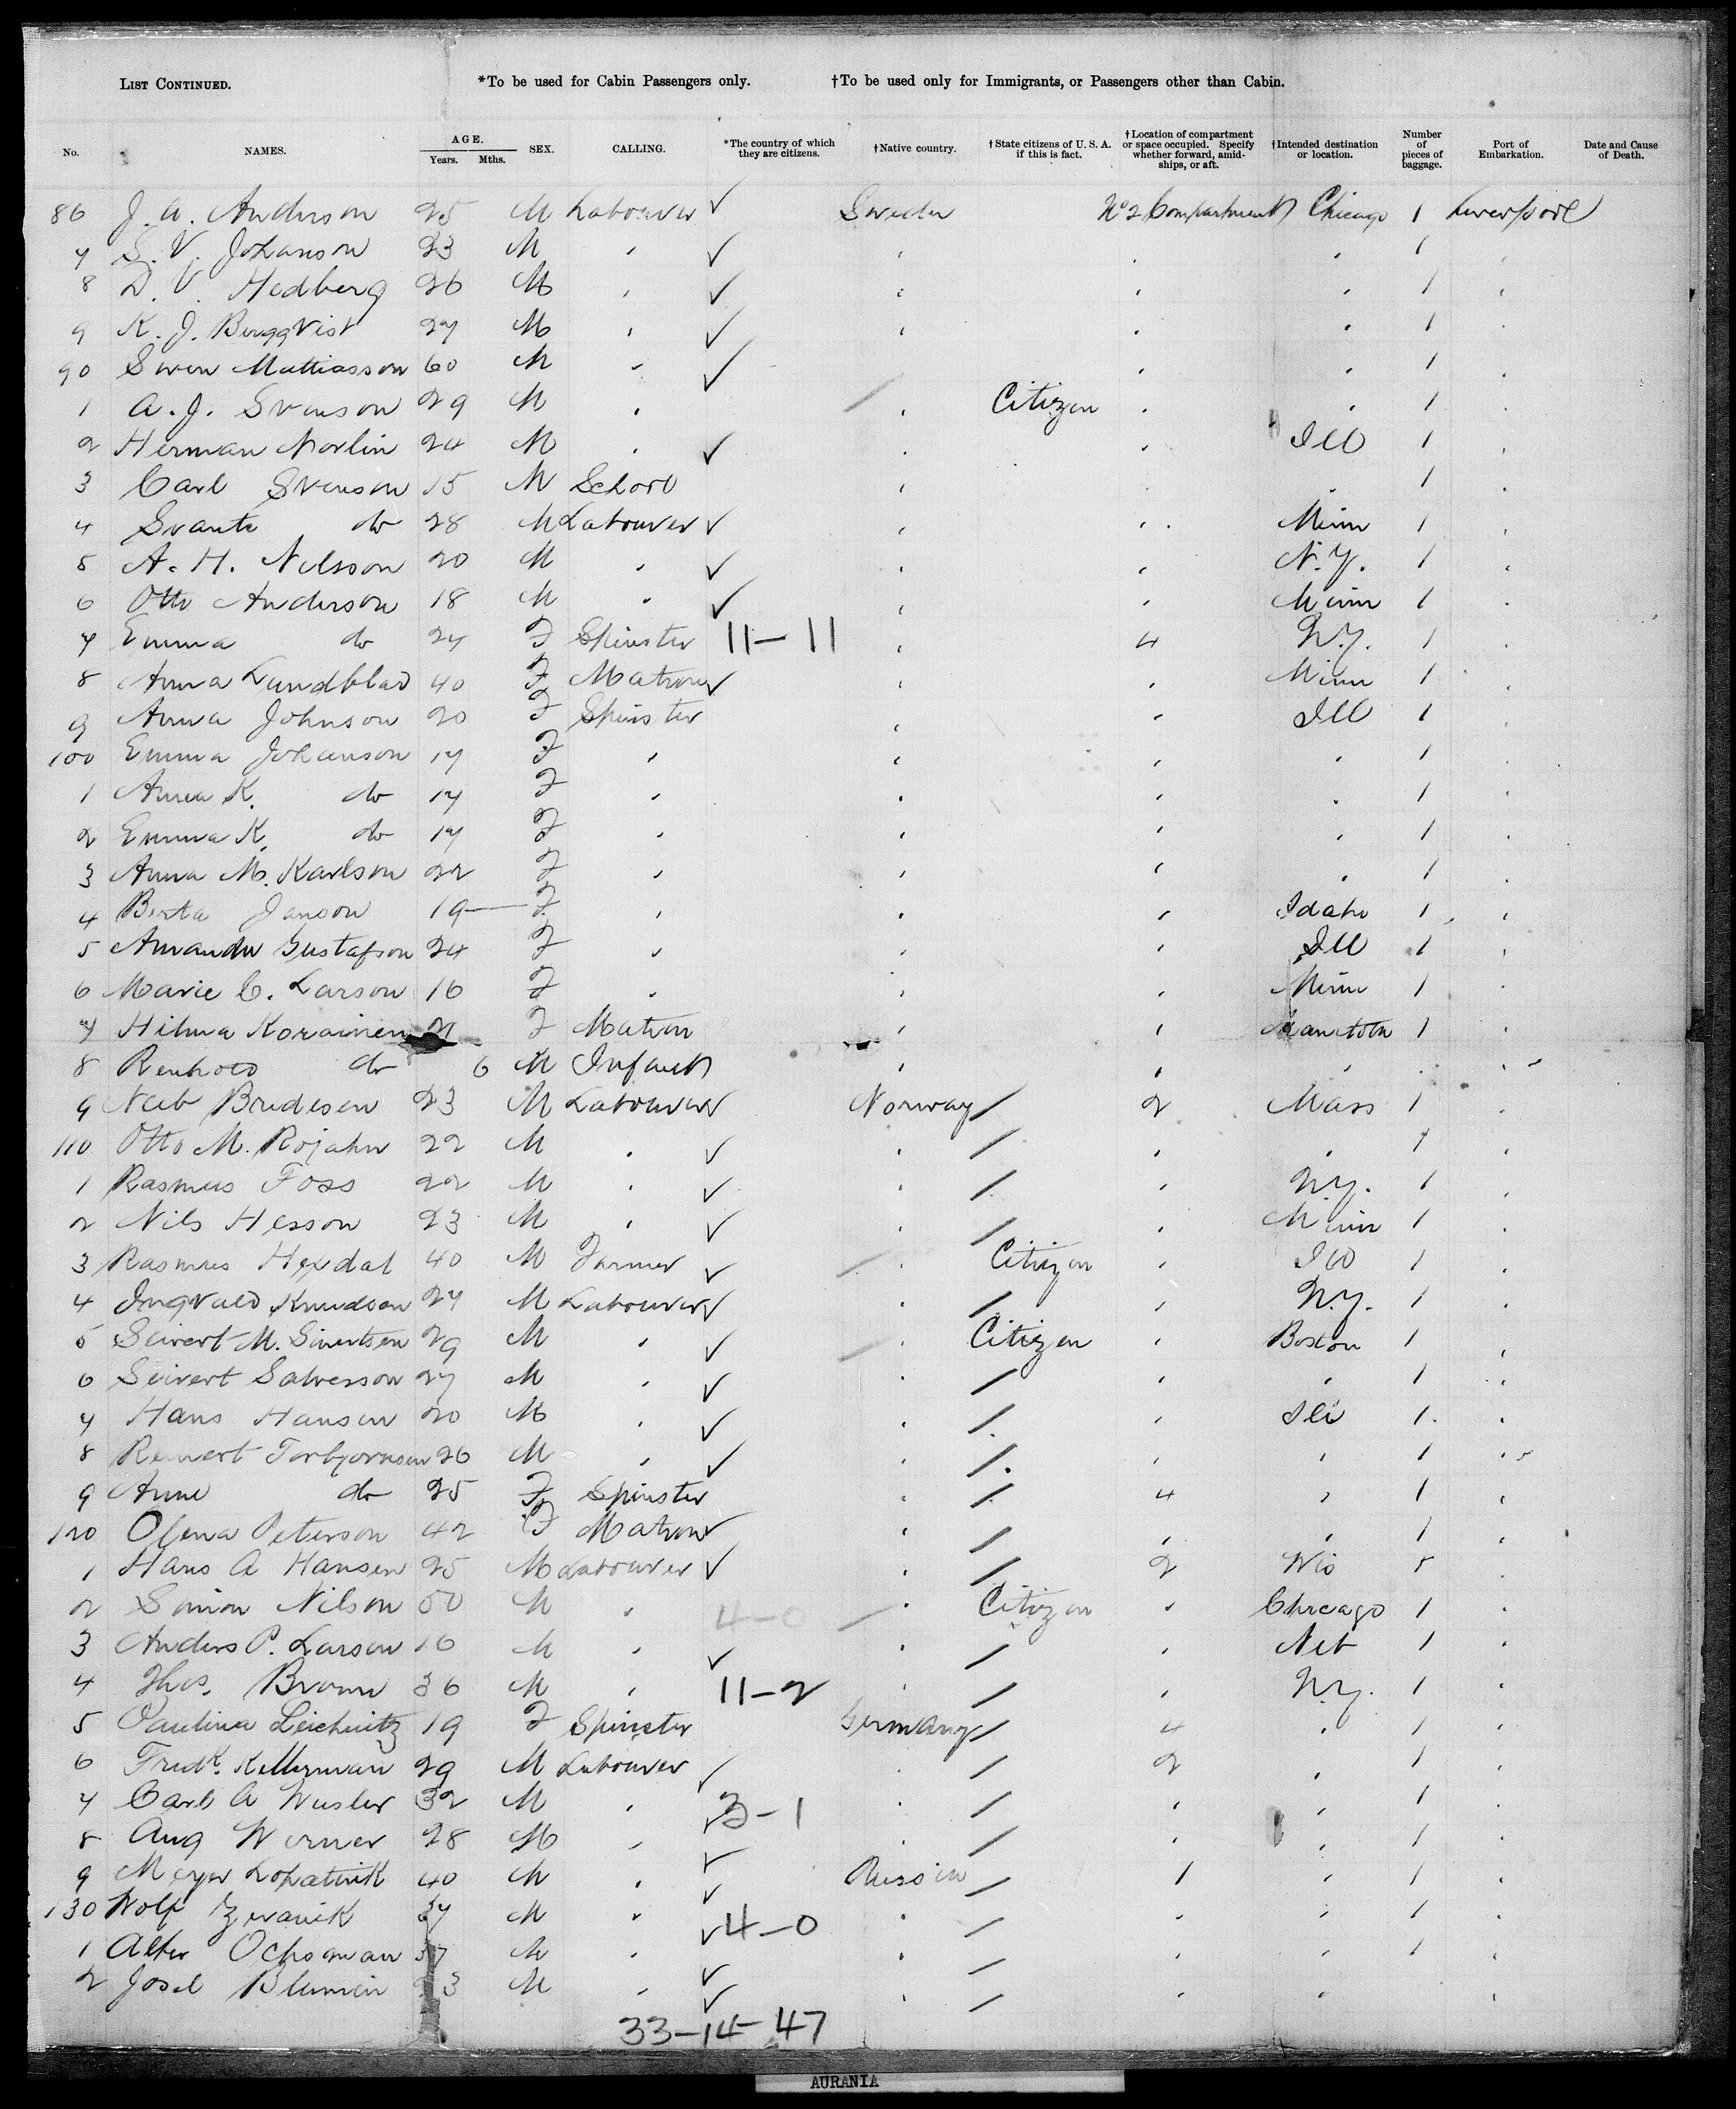 LIST CONTINUED. *To be used for Cabin Passengers only. †To be used only for Immigrants, or Passengers other than Cabin.
No. NAMES. AGE. Years. Mths. SEX. CALLING. *The country of which they are citizens. †Native country. †State citizens of U. S. A. if this is fact. †Location of compartment or space occupied. Specify whether forward, amidships, or aft. †Intended destination or location. Number of pieces of baggage. Port of Embarkation. Date and Cause of Death.
86 J. A. Anderson 25 M Labourer ✓ Sweden No 2 Compartment Chicago 1 Liverpool
7 S. V. Johanson 23 M " ✓ " " " 1 "
8 D. V. Hedberg 26 M " ✓ " " " 1 "
9 K. J. Berggvist 27 M " ✓ " " " 1 "
90 Swen Mattiasson 60 M " ✓ " " 1 "
1 A. J. Svenson 29 M " / " Citizen " " 1 "
2 Herman Norlin 24 M " ✓ " " Ill 1 "
3 Carl Svenson 15 M School " " " 1 "
4 Svante do 28 M Labourer ✓ " " Minn 1 "
5 A. H. Nelsson 20 M " ✓ " " N.Y. 1 "
6 Otto Anderson 18 M " ✓ " " Minn 1 "
7 Emma do 27 F Spinster 11-11 " 4 N.Y. 1 "
8 Anna Lundblad 40 F Matron ✓ " " Minn 1 "
9 Anna Johnson 20 F Spinster " " Ill 1 "
100 Emma Johanson 17 F " " " " 1 "
1 Anna K. do 17 F " " " " 1 "
2 Emma K. do 17 F " " " " 1 "
3 Anna M. Karlson 22 F " " " " 1 "
4 Berta Janson 19 F " " " Idaho 1 "
5 Amanda Gustafson 24 F " " " Ill 1 "
6 Marie C. Larson 16 F " " " Minn 1 "
7 Hilma Korainen F Matron " " Manitoba 1 "
8 do 6 M Infant " " " "
9 Brudesen 23 M Labourer ✓ Norway / 2 Mass 1 "
110 Otto M. Rojahn 22 M " ✓ " / " " 1 "
1 Rasmus Foss 22 M " ✓ " / " N.Y. 1 "
2 Nils Hesson 23 M " ✓ " / " Minn 1 "
3 Rasmus 40 M Farmer ✓ / " Citizen " Ill 1 "
4 Ingvald Knudson 27 M Labourer ✓ " / " N.Y. 1 "
5 Seivert M. Sivertsen 29 M " ✓ / " Citizen " Boston 1 "
6 Seivert Salvesson 27 M " ✓ " / " " 1 "
7 Hans Hansen 20 M " ✓ " / " Ill 1 "
8 Reinert Torbjornsen 26 M " ✓ " / " " 1 "
9 Anne do 25 F Spinster " / 4 " 1 "
120 Olena Peterson 42 F Matron ✓ " / " " 1 "
1 Hans A Hansen 25 M Labourer ✓ " / 2 Wis "
2 Simon Nilson 50 M " 4-0 / " Citizen " Chicago 1 "
3 Anders P. Larson 16 M " ✓ " / " Neb 1 "
4 Thos. Brown 36 M " 11-2 " / " N.Y. 1 "
5 Paulina Leichnitz 19 F Spinster Germany / 4 " 1 "
6 Fredk. Kellerman 29 M Labourer ✓ " / 2 " 1 "
7 Carl A Wusler 32 M " ✓ 3-1 " / " " 1 "
8 Aug Werner 28 M " ✓ " / " " 1 "
9 Meyer Lopatnik 40 M " ✓ Russia / 1 " 1 "
130 Wolf M " ✓ 4-0 " / " " 1 "
1 Alter Ochsman 37 M " ✓ " / " " 1 "
2 Josel Blumin M " ✓ " / " " "
33-14-47
AURANIA